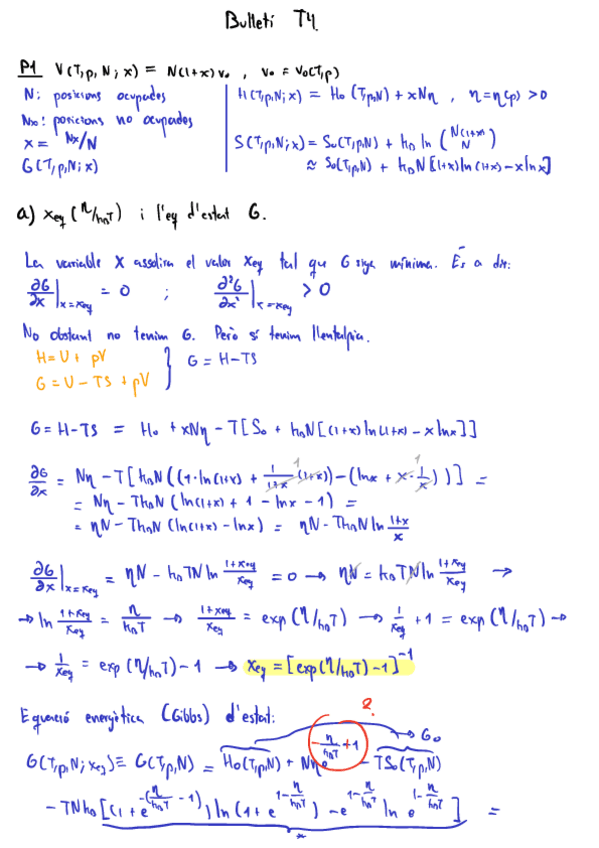 Bulletí T4.
P1 V(T,p,N;x) = N(1+x)v₀ , v₀ = v₀(T,p)
N: posicions ocupades
Nx: posicions no ocupades
x = Nx/N
G(T,p,N;x)
H(T,p,N;x) = H₀(T,p,N) + xNη , η=η(p) >0
S(T,p,N;x) = S₀(T,p,N) + k_B ln (N(1+x) N)
≈ S₀(T,p,N) + k_B N[(1+x)ln(1+x) − x ln x]
a) x_eq (η/k_BT) i l'eq d'estat G.
La variable X assolira el valor x_eq tal que G siga mínima. És a dir:
∂G/∂x |x=x_eq = 0 ; ∂²G/∂x² |x=x_eq > 0
No obstant no tenim G. Però sí tenim l'entalpia.
H = U + pV
G = U − TS + pV } G = H−TS
G = H−TS = H₀ + xNη − T[S₀ + k_B N[(1+x)ln(1+x) − x ln x]]
∂G/∂x = Nη − T[k_B N((1·ln(1+x) + 1/(1+x) (1+x)) − (ln x + x·1/x))] =
= Nη − Tk_BN (ln(1+x) + 1 − ln x − 1) =
= ηN − Tk_BN (ln(1+x) − ln x) = ηN − Tk_BN ln (1+x)/x
∂G/∂x |x=x_eq = ηN − k_BTN ln (1+x_eq)/x_eq = 0 → ηN = k_BTN ln (1+x_eq)/x_eq →
→ ln (1+x_eq)/x_eq = η/k_BT → (1+x_eq)/x_eq = exp(η/k_BT) → 1/x_eq + 1 = exp(η/k_BT) →
→ 1/x_eq = exp(η/k_BT) − 1 → x_eq = [exp(η/k_BT) − 1]⁻¹
?
Equació energètica (Gibbs) d'estat:
→ G₀
G(T,p,N;x_eq) ≡ G(T,p,N) = H₀(T,p,N) + Nη e^(−η/k_BT + 1) − TS₀(T,p,N)
− TNk_B[(1 + e^−(η/k_BT − 1)) ln (1 + e^(1−η/k_BT)) − e^(1−η/k_BT) ln e^(1−η/k_BT)] =
*